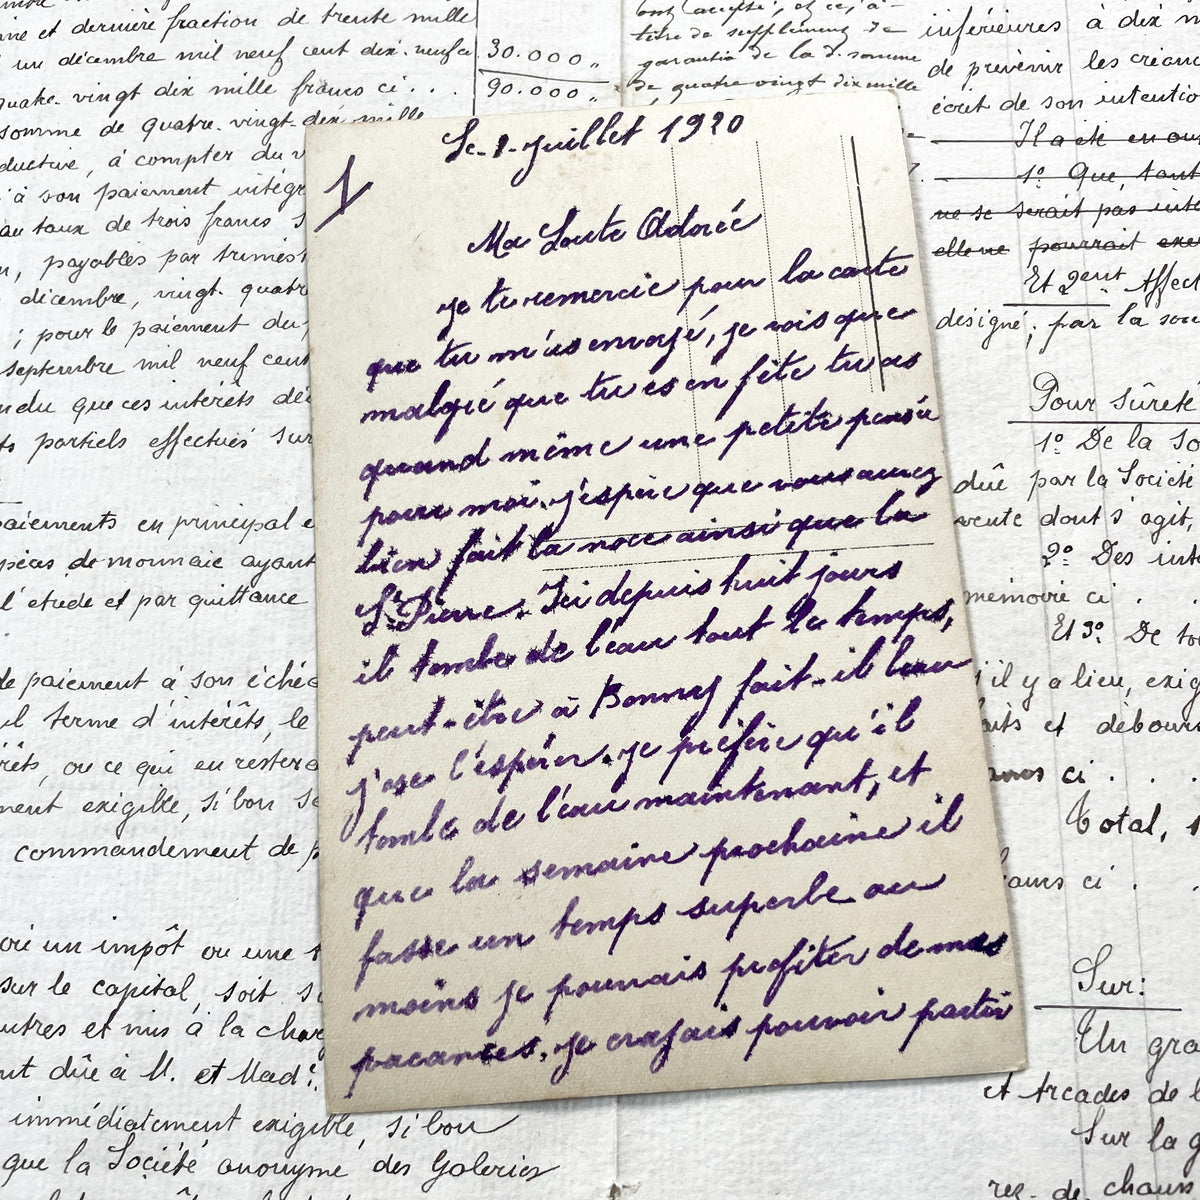 et dernière fraction de trente mille
un décembre mil neuf cent dix-neuf ci
30.000
quatre-vingt dix mille francs ci . . .
90.000
somme de quatre-vingt-dix mille
à compter du
à son paiement
au taux de trois francs
payables par
décembre, vingt-quatre
; pour le paiement du
septembre mil neuf cent
que ces intérêts
partiels effectués sur
paiements en principal
de monnaie ayant
l'étude et par quittance
de paiement à son
terme d'intérêts, le
ou ce qui en restera
exigible, si bon
commandement de
un impôt ou une
sur le capital, soit
autres et mis à la
dût à M. et Mad.
immédiatement exigible, si bon
que la Société anonyme des Galeries
ont accepté, et ce, à
titre de supplément de
garantie de la d. somme
de quatre vingt dix mille
Le 1 Juillet 1920
1
Ma Loute Adorée
je te remercie pour la carte
que tu m'as envoyé, je vois que
malgré que tu es en fête tu as
quand même une petite pensée
pour moi, j'espère que vous avez
bien fait la noce ainsi que la
St Pierre. Ici depuis huit jours
il tombe de l'eau tout le temps,
peut-être à Bonnay fait-il beau
j'ose l'espérer. je préfère qu'il
tombe de l'eau maintenant, et
que la semaine prochaine il
fasse un temps superbe au
moins je pourrais profiter de mes
vacances. je croyais pouvoir partir
inférieures à dix
de prévenir les
écrit de son
Il a été
1º Que, tant
ne se serait pas
elle ne pourrait
Et 2ent
désigné; par la
Pour sûreté
1º De la
dûe par la Société
vente dont s'agit,
2º Des
mémoire ci . .
Et 3º De
s'il y a lieu,
et
ci . . .
Total,
francs ci . .
Sur:
Un
et Arcades de
Sur la
de